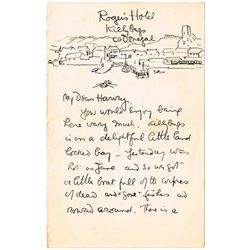 Rogers Hotel
Killybegs
Co Donegal
My Dear Harvey.
You would enjoy being
here very much. Killybegs
is in a delightful little land
locked bay – yesterday was
hot as June and so we got
a little boat full of the corpses
of dead and "gone" fishes and
rowed around. There is a